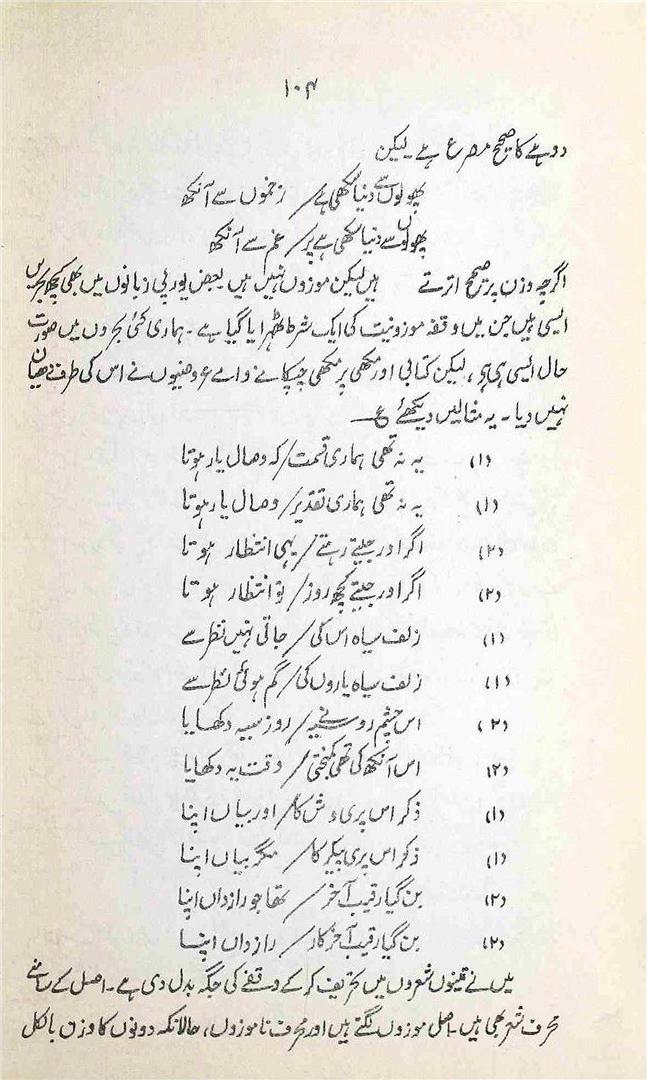 ۱۰۴
دوہے کا صحیح مصرع ہے۔ لیکن
پھولوں سے دنیا سکھی ہے / زخموں سے آنکھ
پھولوں سے دنیا سکھی ہے پر / غم سے آنکھ
اگرچہ وزن پر صحیح اترتے ہیں لیکن موزوں نہیں ہیں۔ بعض یورپی زبانوں میں بھی کچھ بحریں
ایسی ہیں جن میں وقفہ موزونیت کی ایک شرط ٹھہرایا گیا ہے۔ ہماری کئی بحروں میں صورت
حال ایسی ہی ہے، لیکن کتابی اور مکھی پر مکھی چپکانے والے عروضیوں نے اس کی طرف دھیان
نہیں دیا۔ یہ مثالیں دیکھئے ؏
(۱) یہ نہ تھی ہماری قسمت / کہ وصال یار ہوتا
(۱) یہ نہ تھی ہماری تقدیر / وصال یار ہوتا
(۲) اگر اور جیتے رہتے / یہی انتظار ہوتا
(۲) اگر اور جیتے کچھ روز / تو انتظار ہوتا
(۱) زلف سیاہ اس کی / جاتی نہیں نظر سے
(۱) زلف سیاہ یاروں کی / گم ہوئی نظر سے
(۲) اس چشم رو سیہ نے / روز سیہ دکھایا
(۲) اس آنکھ کی تھی کمبختی / وقت بہ دکھایا
(۱) ذکر اس پری وش کا / اور بیاں اپنا
(۱) ذکر اس پری پیکر کا / مگر بیاں اپنا
(۲) بن گیا رقیب آخر / تھا جو رازداں اپنا
(۲) بن گیا رقیب آخر کار / رازداں اپنا
میں نے تینوں شعروں میں تحریف کر کے وقفے کی جگہ بدل دی ہے۔ اصل کے سامنے
محرف شعر بھی ہیں۔ اصل موزوں لگتے ہیں اور محرف ناموزوں، حالانکہ دونوں کا وزن بالکل